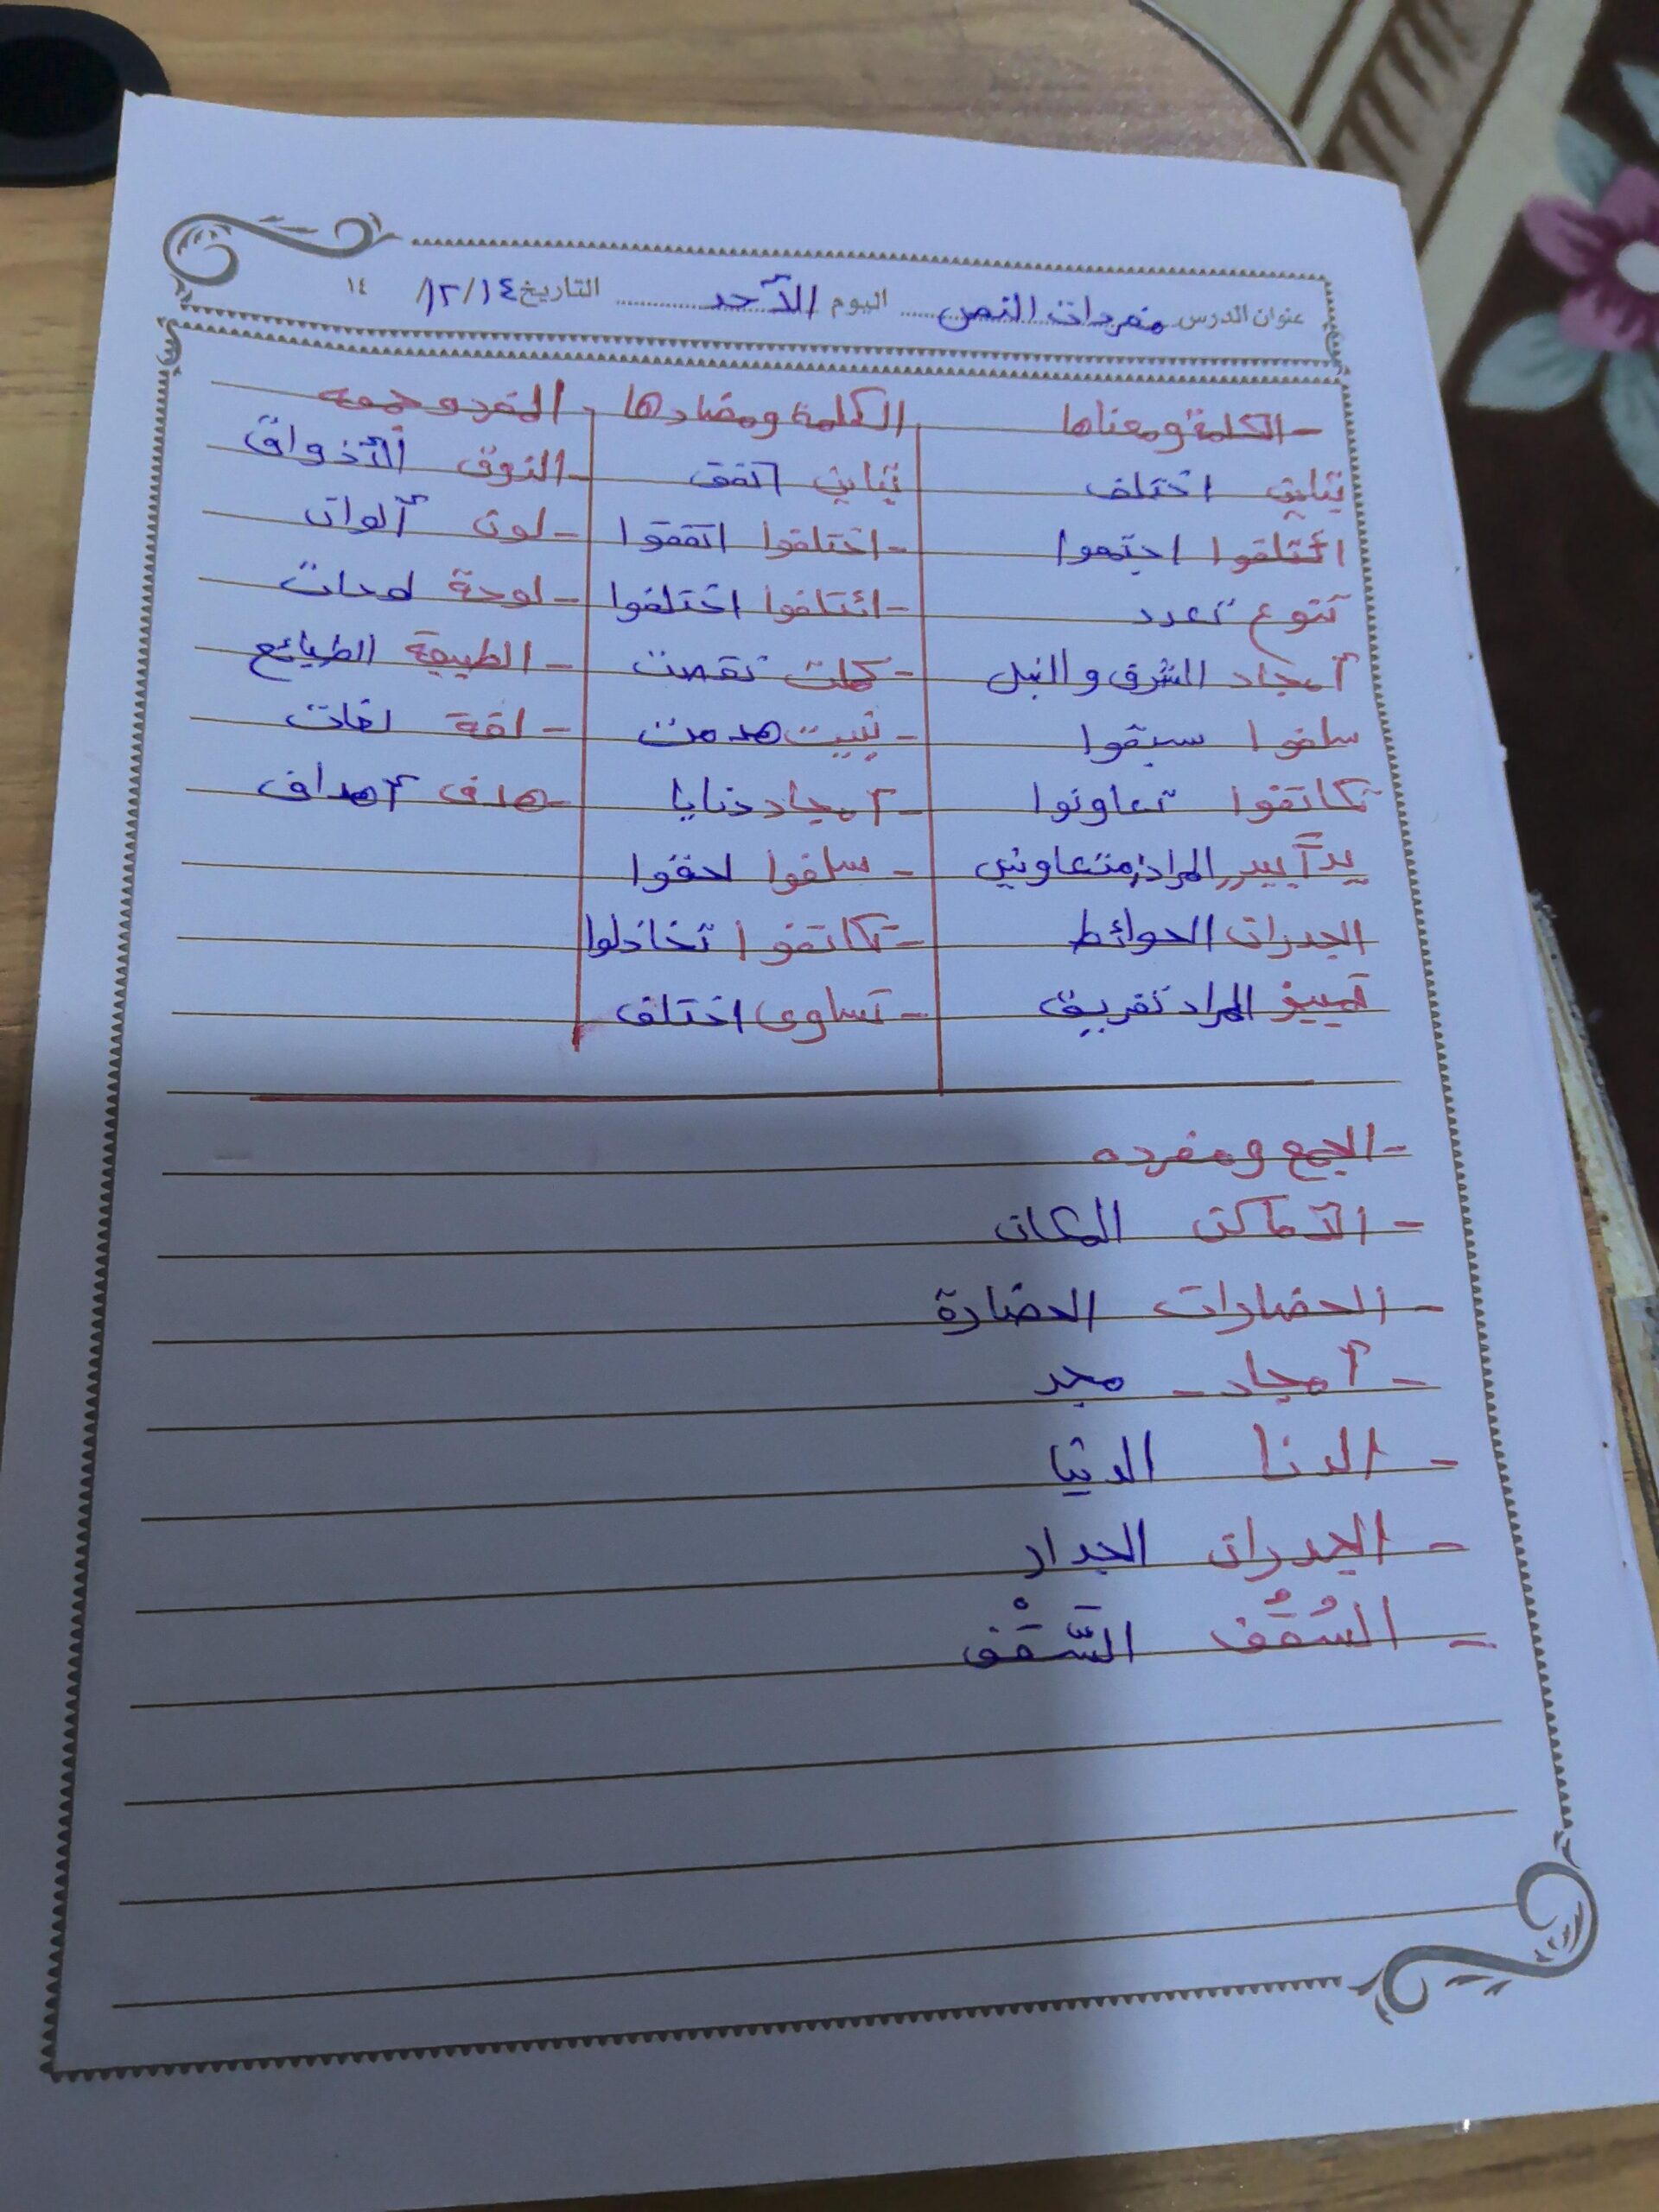 عنوان الدرس مفردات النص اليوم الأحد التاريخ ١٢/١٤/ ١٤
- الكلمة ومعناها الكلمة ومضادها المفرد وجمعه
تباين اختلف تباين اتفق - الذوق الأذواق
ائتلفوا اجتمعوا - اختلفوا اتفقوا - لون ألوان
تنوع تعدد - ائتلفوا اختلفوا - لوحة لوحات
أمجاد الشرق والنبل - كملت نقصت - الطبيعة الطبائع
سلفوا سبقوا - بنيت هدمت - لغة لغات
تكاتفوا تعاونوا - أمجاد دنايا - هدف أهداف
يداً بيد المراد: متعاونين - سلفوا لحقوا
الجدران الحوائط - تكاتفوا تخاذلوا
تمييز المراد تفريق - تساوى اختلف
- الجمع ومفرده
- الأماكن المكان
- الحضارات الحضارة
- أمجاد - مجد
- الدنا الدنيا
- الجدران الجدار
- السُقُف السَّقْف